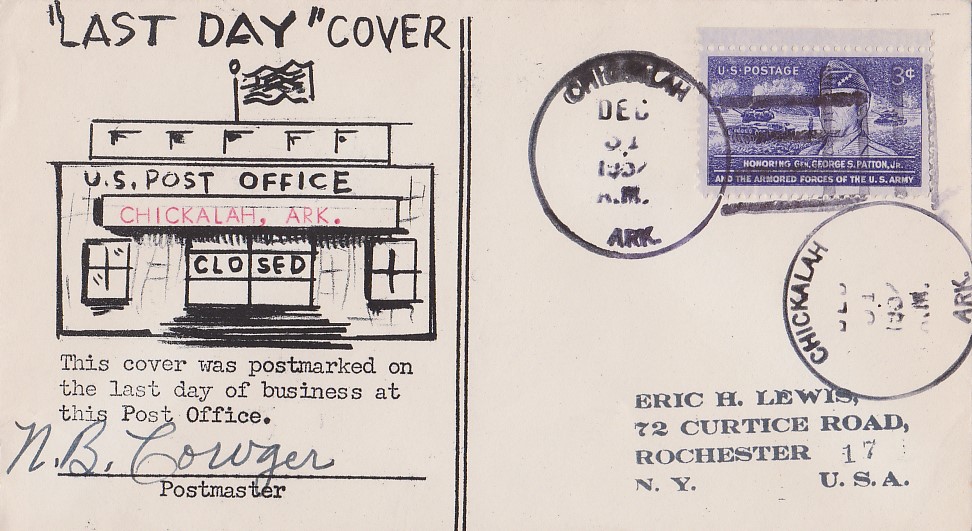 "LAST DAY" COVER
U.S. POST OFFICE
CHICKALAH, ARK.
CLOSED
This cover was postmarked on
the last day of business at
this Post Office.
N.B. Cowger
Postmaster
CHICKALAH
DEC
31
1957
A.M.
ARK.
U·S·POSTAGE 3¢
HONORING GEN. GEORGE S. PATTON, JR.
AND THE ARMORED FORCES OF THE U.S. ARMY
CHICKALAH
DEC
31
1957
A.M.
ARK.
ERIC H. LEWIS,
72 CURTICE ROAD,
ROCHESTER 17
N. Y. U. S. A.